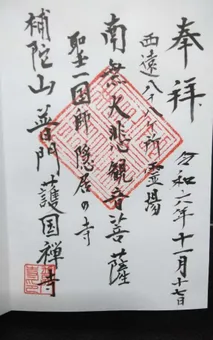 奉拝
令和六年十一月十七日
西遠三十三ヶ所霊場
南無大悲観音菩薩
聖一国師 隠居の寺
補陀山 普門護国禅寺